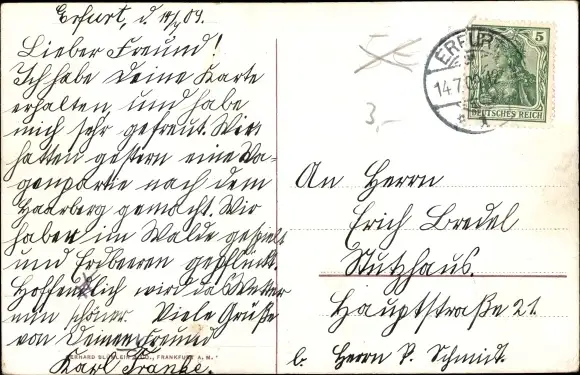 Erfurt, d. 14/7 09.
Lieber Freund!
Ich habe Deine Karte
erhalten, und habe
mich sehr gefreut. Wir
hatten gestern eine Wa-
genpartie nach dem
Haarberg gemacht. Wir
haben im Walde gespielt
und Erdbeeren gepflückt.
Hoffentlich wird das Wetter
nun schöner. Viele Grüße
von Deinem Freund
Karl Franke.
3,-
ERFURT
14.7.09.
5
DEUTSCHES REICH
An Herrn
Erich Bredel
Stutzhaus.
Hauptstraße 21.
b. Herrn P. Schmidt.
FRANKFURT A. M.